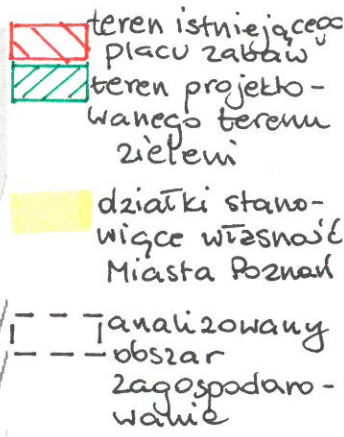 teren istniejącego
placu zabaw
teren projekto-
wanego terenu
zieleni
działki stano-
wiące własność
Miasta Poznań
analizowany
obszar
zagospodaro-
wanie